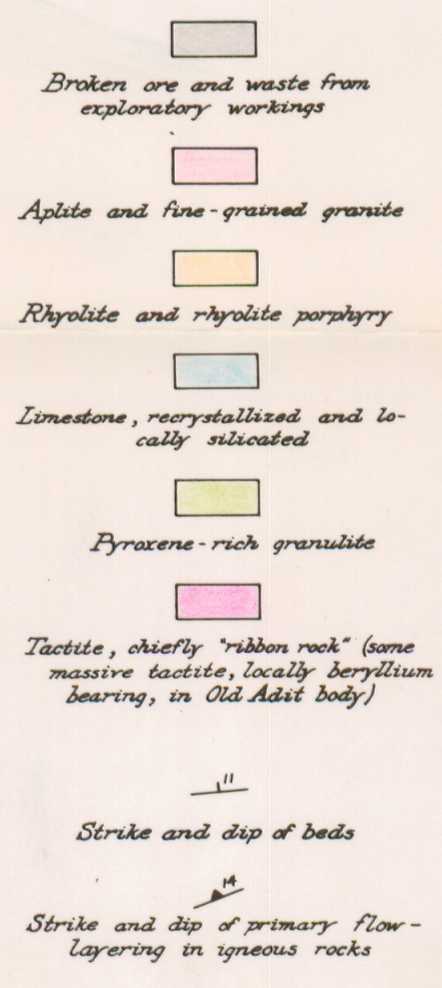 Broken ore and waste from
exploratory workings
Aplite and fine-grained granite
Rhyolite and rhyolite porphyry
Limestone, recrystallized and lo-
cally silicated
Pyroxene-rich granulite
Tactite, chiefly "ribbon rock" (some
massive tactite, locally beryllium
bearing, in Old Adit body)
11
Strike and dip of beds
14
Strike and dip of primary flow-
layering in igneous rocks